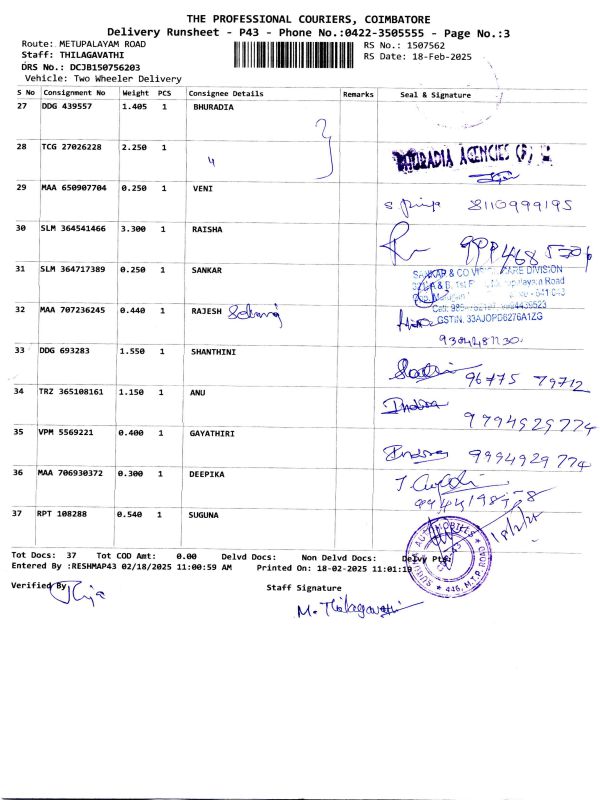 THE PROFESSIONAL COURIERS, COIMBATORE
Delivery Runsheet - P43 - Phone No.:0422-3505555 - Page No.:3
Route: METUPALAYAM ROAD RS No.: 1507562
Staff: THILAGAVATHI RS Date: 18-Feb-2025
DRS No.: DCJB150756203
Vehicle: Two Wheeler Delivery
S No Consignment No Weight PCS Consignee Details Remarks Seal & Signature
27 DDG 439557 1.405 1 BHURADIA
28 TCG 27026228 2.250 1
BHURADIA AGENCIES (P)
29 MAA 650907704 0.250 1 VENI
8110999195
30 SLM 364541466 3.300 1 RAISHA
31 SLM 364717389 0.250 1 SANKAR
SANKAR & CO VISION CARE DIVISION
32 MAA 707236245 0.440 1 RAJESH
GSTIN. 33AJOPD6276A1ZG
33 DDG 693283 1.550 1 SHANTHINI
96775 79712
34 TRZ 365108161 1.150 1 ANU
Indra 9794929774
35 VPM 5569221 0.400 1 GAYATHIRI
Indra 9994929774
36 MAA 706930372 0.300 1 DEEPIKA
37 RPT 108288 0.540 1 SUGUNA
18/2/25
SUGUNA AUTOMOBILES ★ 446, M.T.P. ROAD ★
Tot Docs: 37 Tot COD Amt: 0.00 Delvd Docs: Non Delvd Docs: Delvy Ptg:
Entered By :RESHMAP43 02/18/2025 11:00:59 AM Printed On: 18-02-2025 11:01:19
Verified By Staff Signature
M. Thilagavathi